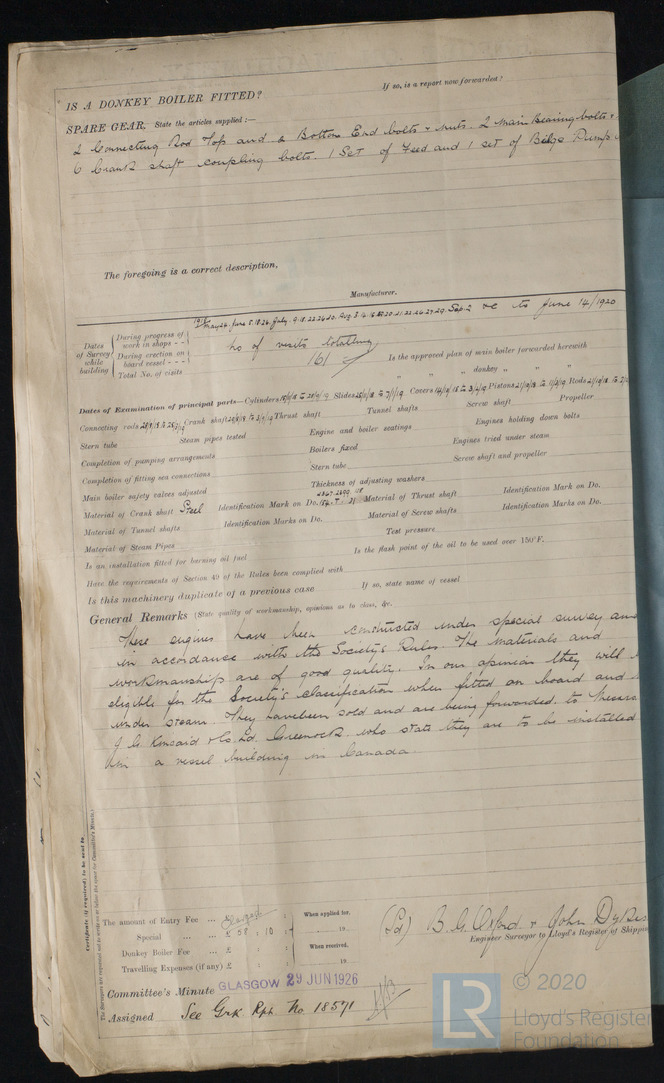 IS A DONKEY BOILER FITTED?
If so, is a report now forwarded?
SPARE GEAR. State the articles supplied:—
2 Connecting Rod Top and 2 Bottom End bolts & nuts. 2 Main Bearing bolts &
6 Crank shaft coupling bolts. 1 Set of Feed and 1 set of Bilge Pump
The foregoing is a correct description,
Manufacturer.
1918 May 24 June 5.18.26 July 9.18.22.24.30. Aug 5. Sep. 2 &c to June 14/1920
Dates of Survey while building
During progress of work in shops - -
During erection on board vessel - - -
Total No. of visits
No of visits totalling
161
Is the approved plan of main boiler forwarded herewith
" " " donkey " " "
Dates of Examination of principal parts—Cylinders Slides Covers Pistons Rods
Connecting rods Crank shaft Thrust shaft Tunnel shafts Screw shaft Propeller
Stern tube Steam pipes tested Engine and boiler seatings Engines holding down bolts
Completion of pumping arrangements Boilers fixed Engines tried under steam
Completion of fitting sea connections Stern tube Screw shaft and propeller
Main boiler safety valves adjusted Thickness of adjusting washers
Material of Crank shaft Steel Identification Mark on Do. Material of Thrust shaft Identification Mark on Do.
Material of Tunnel shafts Identification Marks on Do. Material of Screw shafts Identification Marks on Do.
Material of Steam Pipes Test pressure
Is an installation fitted for burning oil fuel Is the flash point of the oil to be used over 150°F.
Have the requirements of Section 49 of the Rules been complied with
Is this machinery duplicate of a previous case If so, state name of vessel
General Remarks (State quality of workmanship, opinions as to class, &c.
These engines have been constructed under special survey and
in accordance with the Society's Rules. The materials and
workmanship are of good quality. In our opinion they will
eligible for the Society's classification when fitted on board and
under steam. They have been sold and are being forwarded to Messrs
J. G. Kincaid & Co. Ld. Greenock who state they are to be installed
in a vessel building in Canada.
Certificate (if required) to be sent to
The Surveyors are requested not to write on or below the space for Committee's Minute.
The amount of Entry Fee ... £ : : When applied for,
Special ... ... £ 58 : 10 : 19
Donkey Boiler Fee ... £ : : When received,
Travelling Expenses (if any) £ : : 19
(Sd) B. G. Oxford & John Dykes
Engineer Surveyor to Lloyd's Register of Shipping
Committee's Minute GLASGOW 29 JUN 1926
Assigned See Grk Rpt. No 18571
© 2020
LR
Lloyd's Register
Foundation